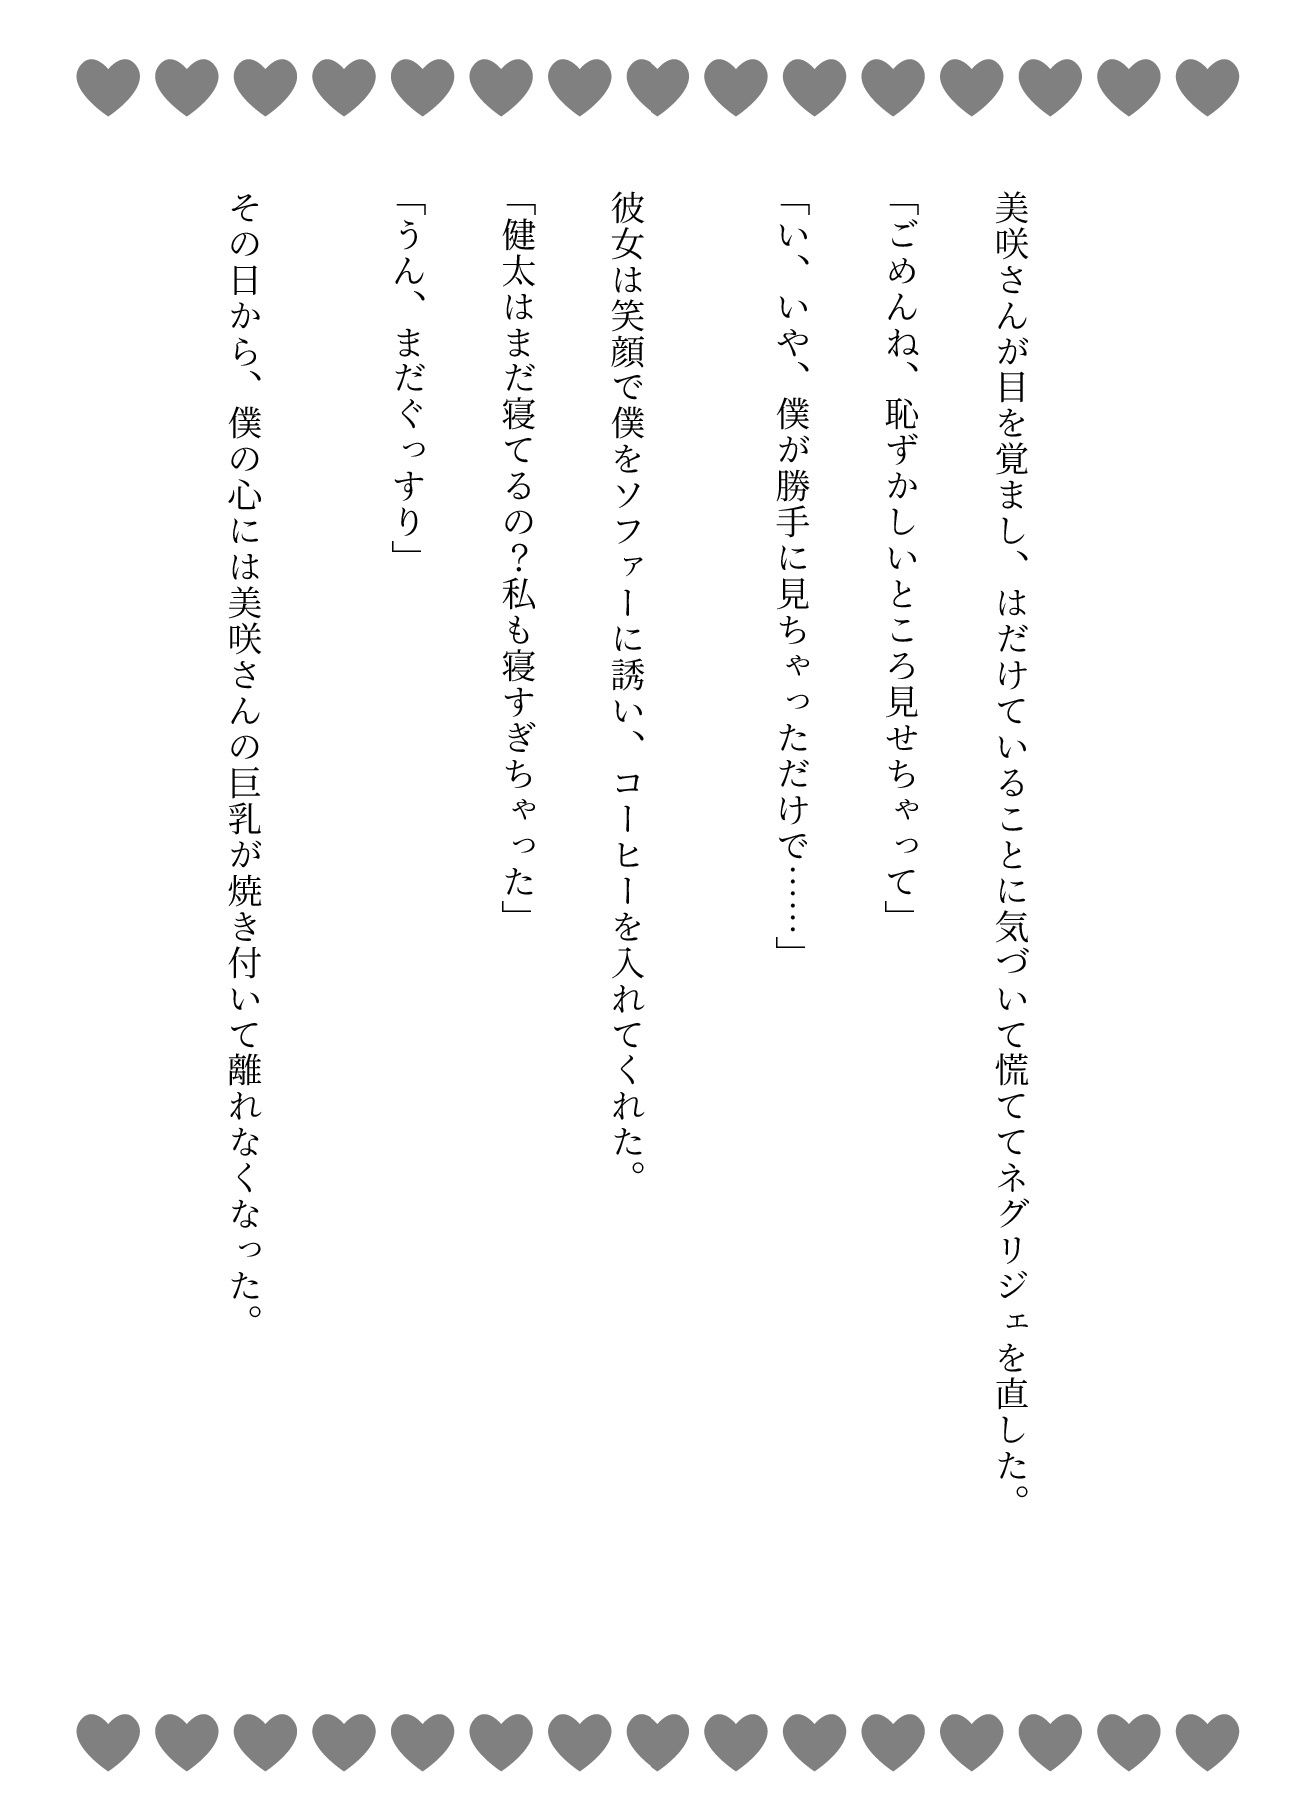 美咲さんが目を覚まし、はだけていることに気づいて慌ててネグリジェを直した。
「ごめんね、恥ずかしいところ見せちゃって」
「い、いや、僕が勝手に見ちゃっただけで……」
彼女は笑顔で僕をソファーに誘い、コーヒーを入れてくれた。
「健太はまだ寝てるの？私も寝すぎちゃった」
「うん、まだぐっすり」
その日から、僕の心には美咲さんの巨乳が焼き付いて離れなくなった。